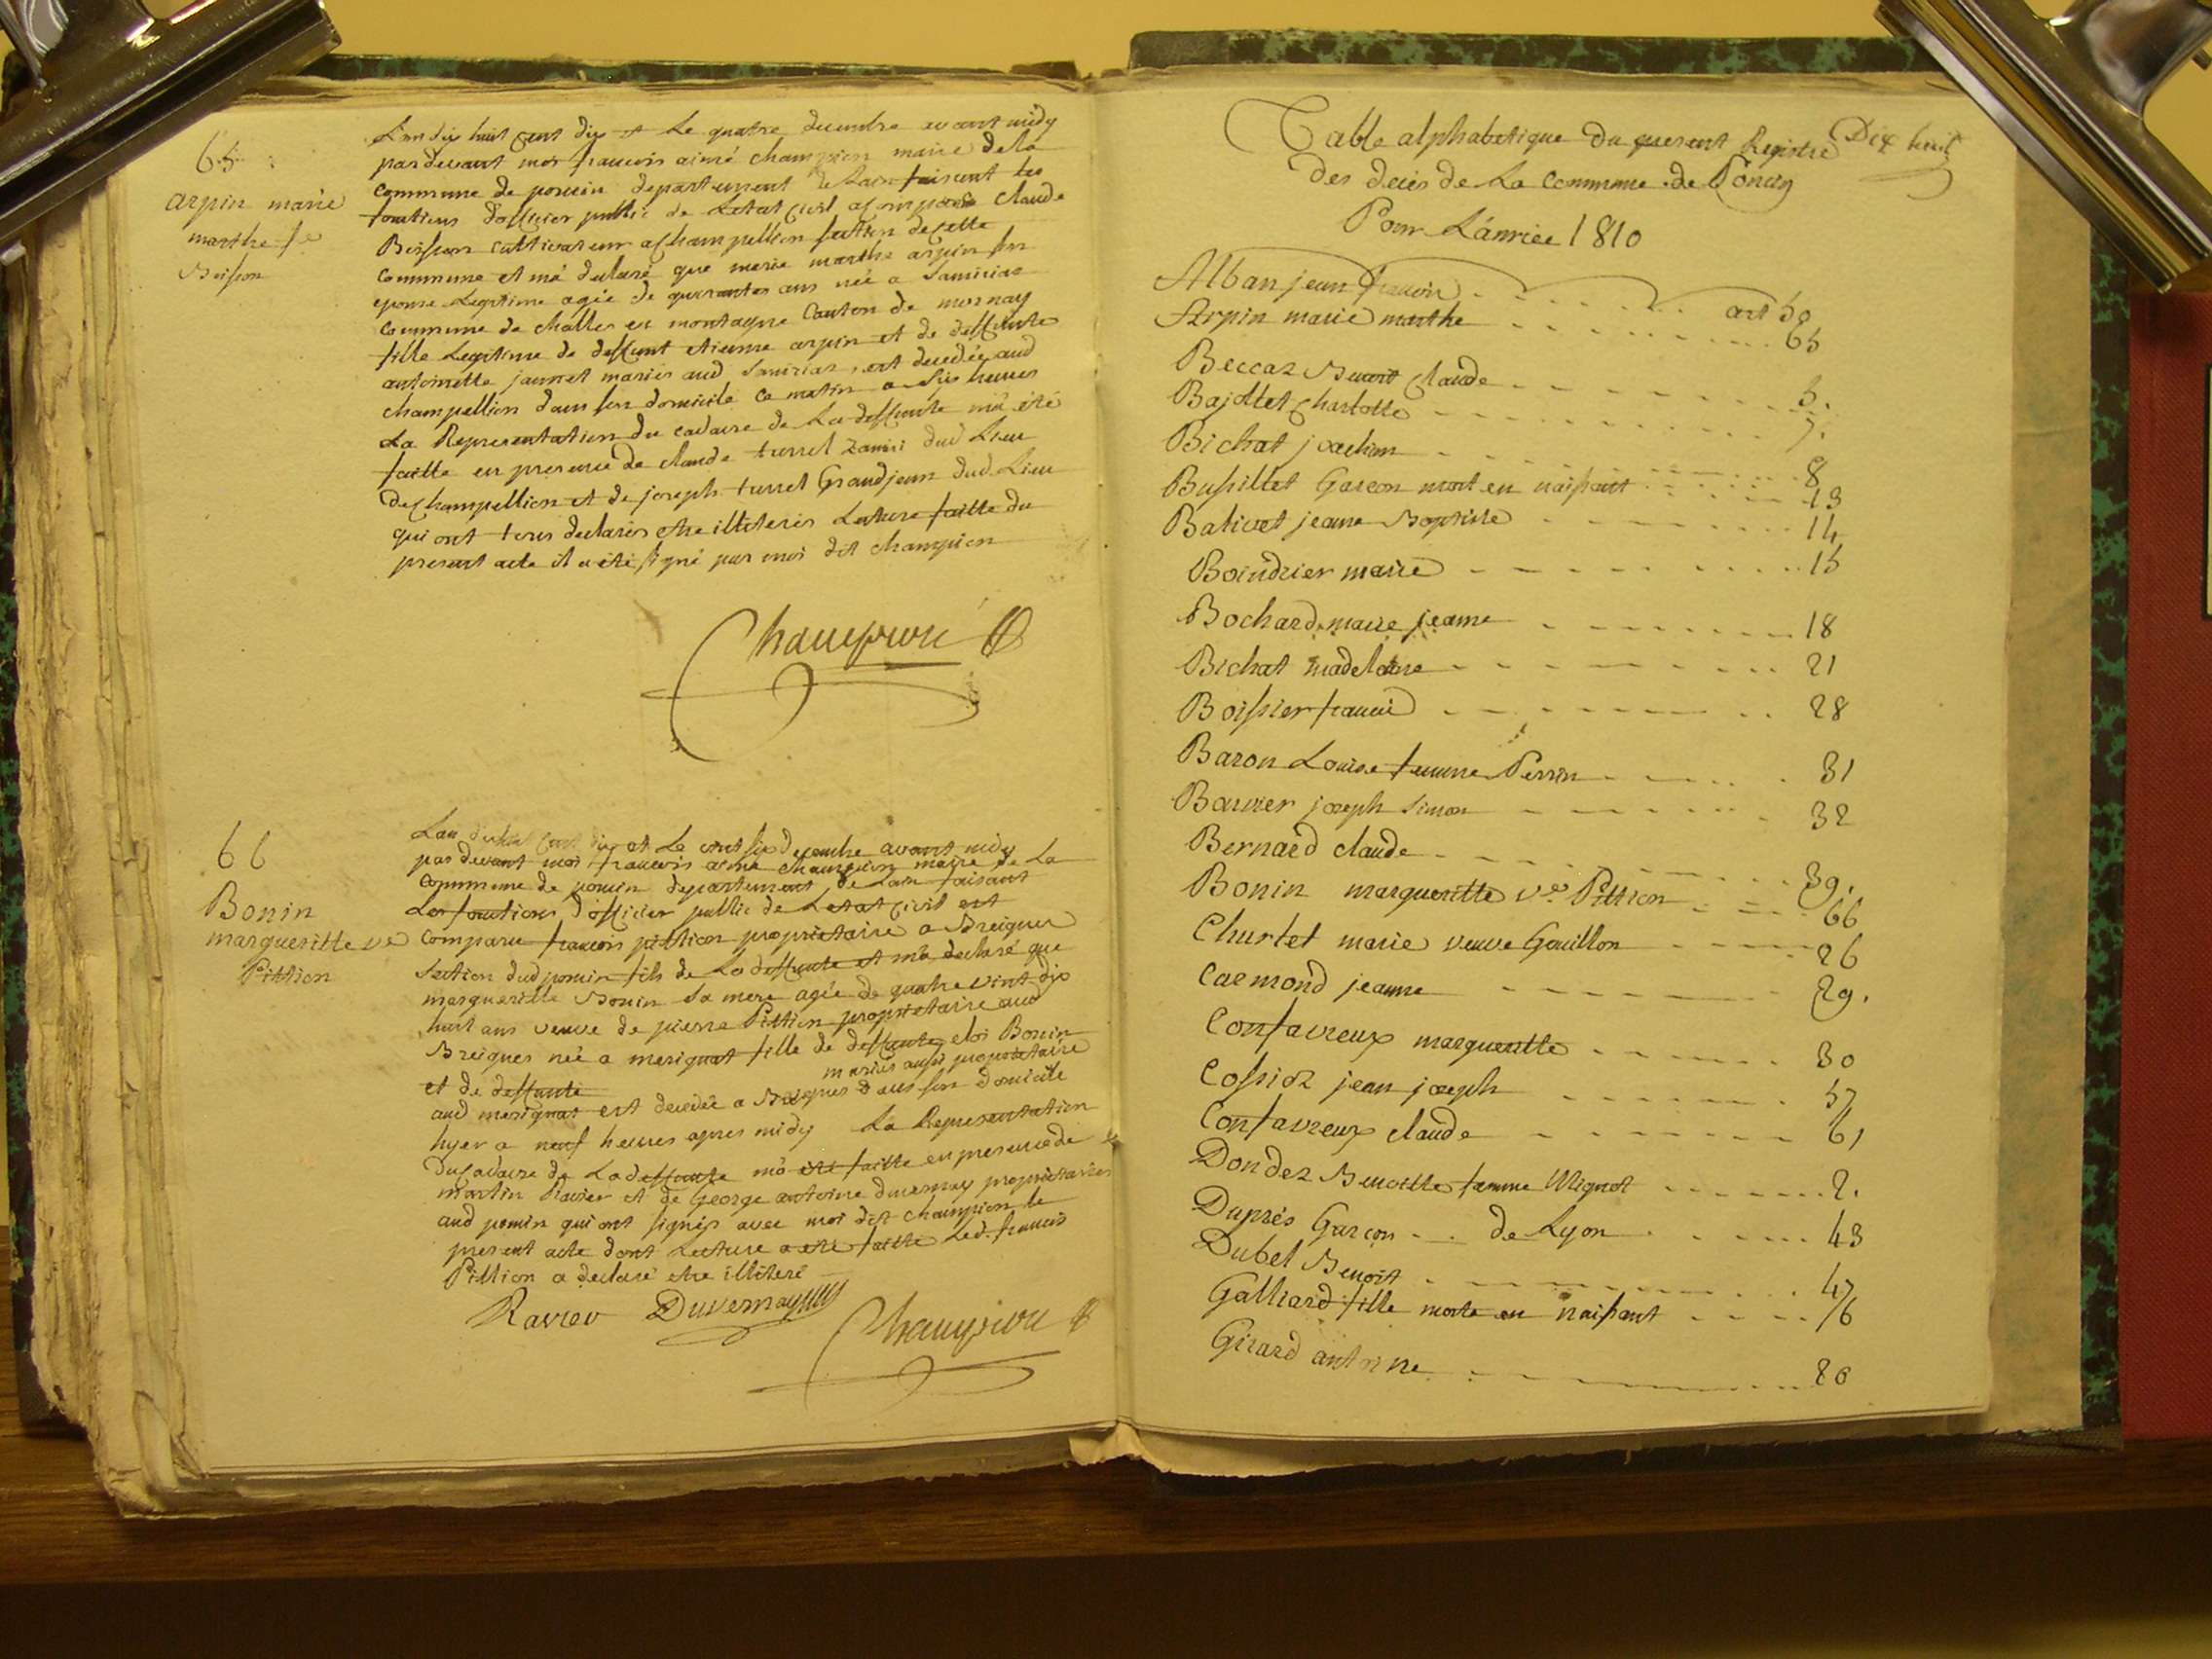 65
arpin marie
marthe fe
Boisson
L'an dix huit cent dix et le quatre decembre avant midy
pardevant moi francois aimé champion maire de la
commune de poncin departement de Lain faisant les
fonctions d'officier public de Letat civil a comparu claude
Boisson cultivateur a champellion section de cette
commune et m'a declaré que marie marthe arpin son
epouse Legitime agée de quarante ans née a
commune de challes en montagne Canton de mornay
fille Legitime de deffunt etienne arpin et de deffunte
antoinette jannet mariés aud est decedée aud
champellion dans son domicile ce matin a six heures
La Representation du cadavre de La deffunte m'a été
faitte en presence de claude turrel dud Lieu
de champellion et de joseph turrel Grandjean dud. Lieu
qui ont tous declarés etre illiterés Lecture faitte du
present acte il a été signé par moi dit champion
Champion
66
Bonin
margueritte ve
Pittion
Lan dix huit cent dix et Le vint six decembre avant midy
par devant moi francois aimé champion maire de La
commune de poncin departement de Lain faisant
Les fonctions d'officier public de Letat civil est
comparu francois pittion proprietaire a Breignes
section dud poncin fils de La deffunte et m'a declaré que
margueritte Bonin sa mere agée de quatre vint dix
huit ans veuve de pierre Pittion proprietaire aud
Breignes née a merignat fille de deffunte eloi Bonin
et de deffunte mariés aussi proprietaire
aud merignat est decedée a Breignes dans son domicile
hyer a neuf heures apres midy La Representation
du cadavre de La deffunte m'a été faitte en presence de
martin Ravier et de George antoine duvernay proprietaires
aud poncin qui ont signés avec moi dit champion le
present acte dont Lecture a été faitte Led. francois
Pittion a declaré etre illiteré
Ravier Duvernay
Champion
Dix huit
Table alphabetique du present Registre
des deces de La Commune de Poncin
Pour L'année 1810
Alban jean francois art 50
Arpin marie marthe 65
Beccaz Benoit Claude 5.
Bajollet Charlotte 7.
Bichat joachim 8
Busillet Garcon mort en naissant 13
Balivet jeanne Baptiste 14
Boindrier marie 15
Bochard marie jeanne 18
Bichat madelaine 21
Boissier francois 28
Baron Louise femme Perrin 31
Bouvier joseph Simon 32
Bernard claude 39.
Bonin margueritte ve Pittion 66
Churlet marie veuve Gouillon 26
Carmond jeanne 29.
Confavreux margueritte 30
Cossioz jean joseph 57
Confavreux claude 61
Dondez Benoitte femme Mignot 2.
Duprés Garcon de Lyon 43
Dubel Benoit 47
Galliard fille morte en naissant 6
Girard antoine 20